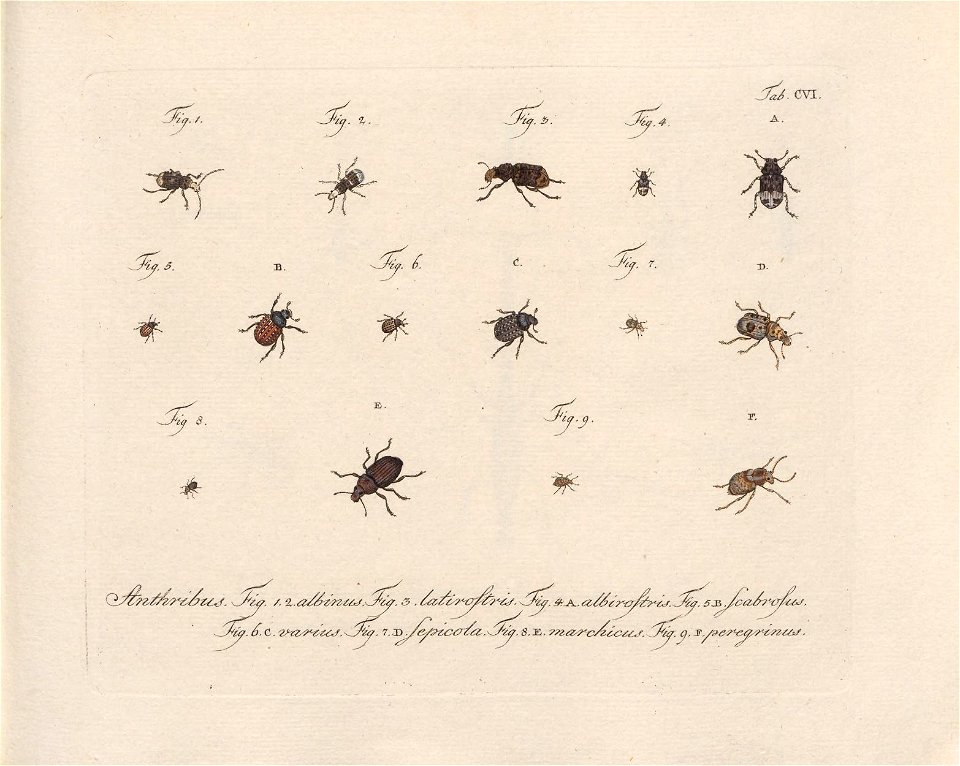 Tab. CVI.
Fig. 1. Fig. 2. Fig. 3. Fig. 4. A.
Fig. 5. B. Fig. 6. C. Fig. 7. D.
Fig 8. E. Fig. 9. F.
Anthribus. Fig. 1. 2 albinus. Fig. 3. latiroſtris. Fig. 4 A. albiroſtris. Fig. 5 B. ſcabroſus.
Fig. 6. C. varius. Fig. 7. D. ſepicola. Fig. 8. E. marchicus. Fig. 9. F. peregrinus.